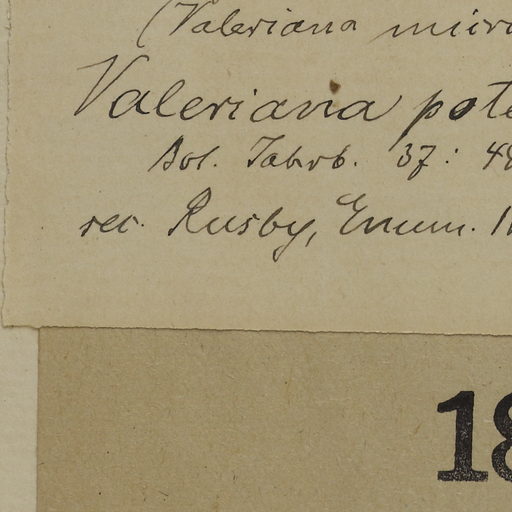 (Valeriana micr
Valeriana pote
Bot. Jahrb. 37: 48
rec. Rusby, Enum. 1
18